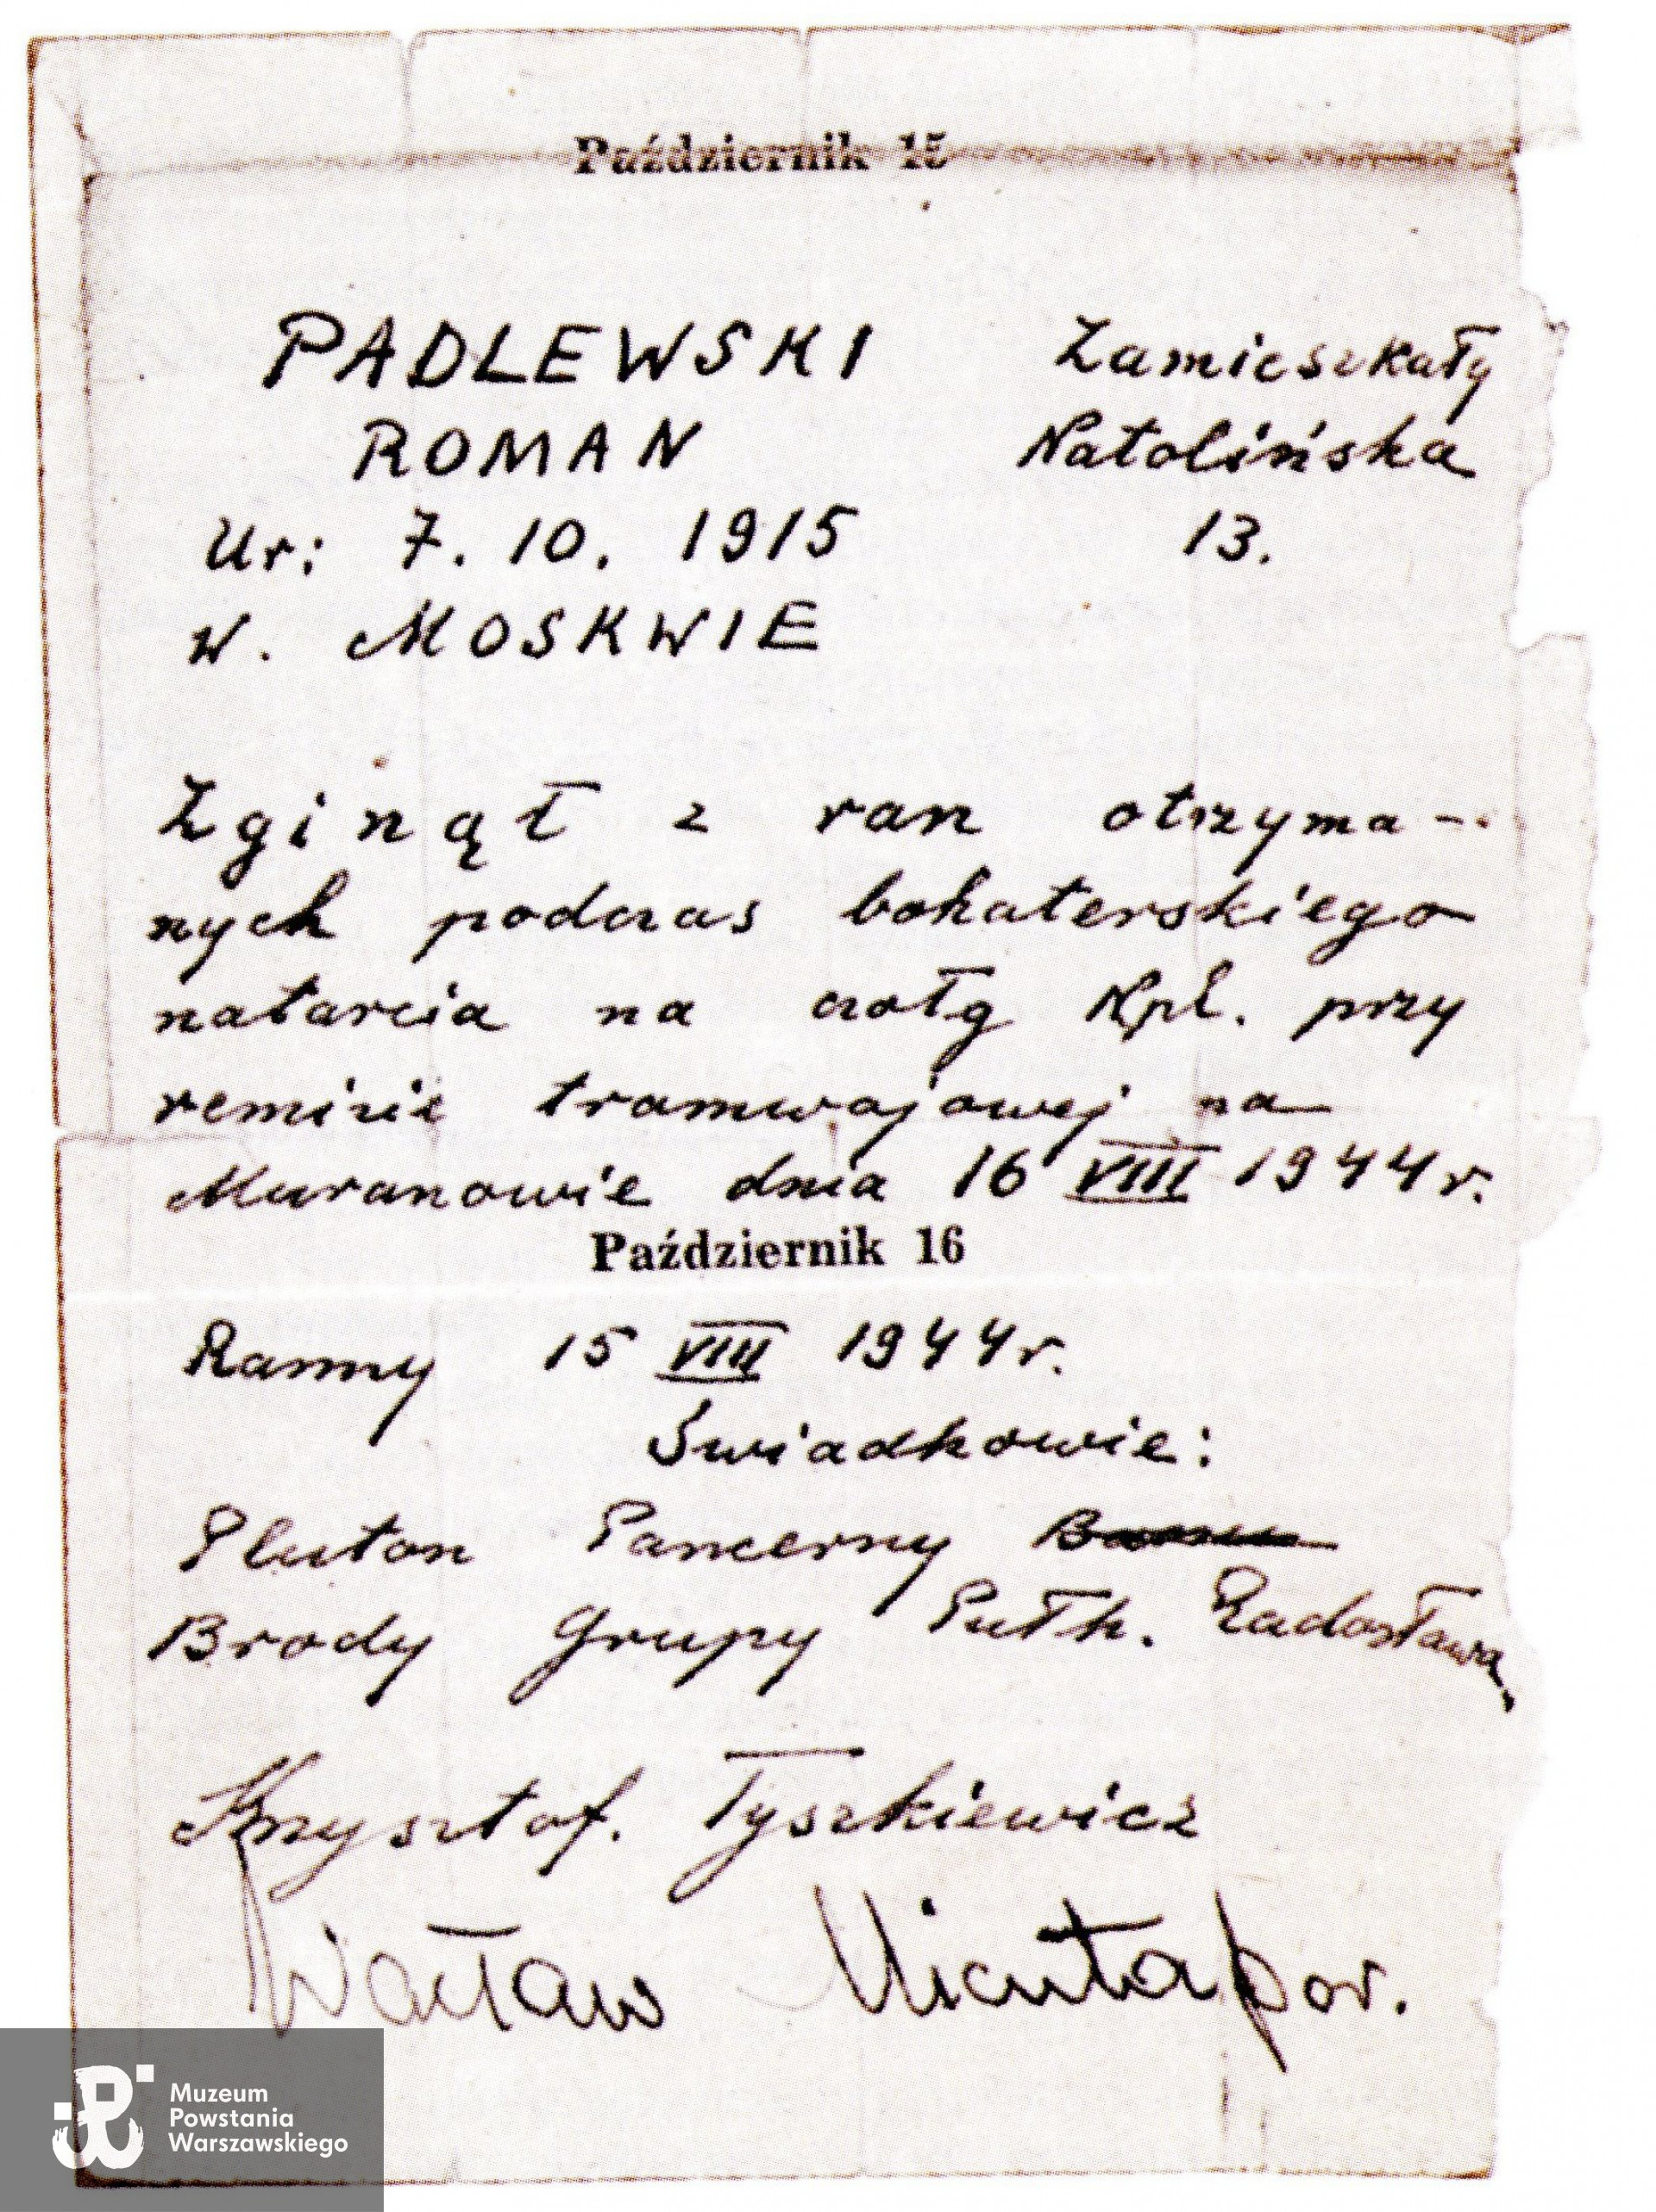 Październik 15
PADLEWSKI Zamieszkały
ROMAN Natolińska
Ur: 7. 10. 1915 13.
W. MOSKWIE
Zginął z ran otrzyma-
nych podczas bohaterskiego
natarcia na czołg Npl. przy
remizie tramwajowej na
Muranowie dnia 16 VIII 1944 r.
Październik 16
Ranny 15 VIII 1944 r.
Świadkowie:
Pluton Pancerny
Brody Grupy Putk. Radosława
Krzysztof. Tyszkiewicz
Wacław Micuta por.
Muzeum
Powstania
Warszawskiego